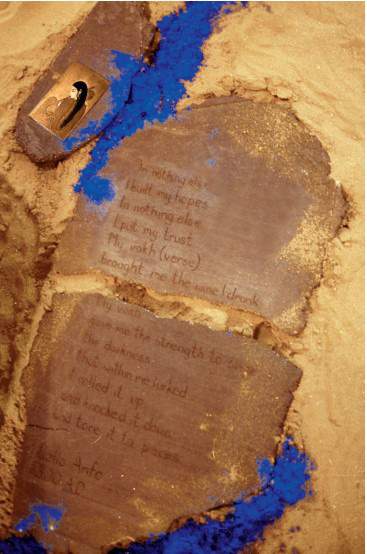 In nothing else
I built my hopes
In nothing else
I put my trust.
My wakh (verse)
brought me the wine I drank
My wakh
gave me the strength to
the darkness
that within me lurked
I rolled it up
and knocked it down
and tore it to pieces.